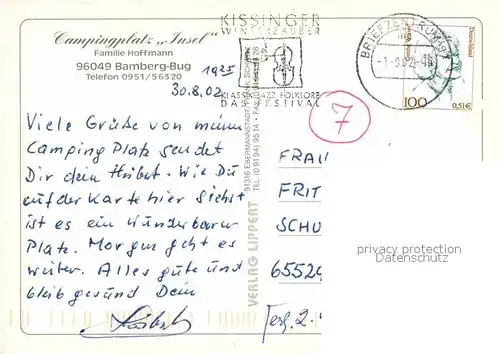 Campingplatz „Insel"
Familie Hoffmann
96049 Bamberg-Bug
Telefon 0951/56320
1925
30.8.02
Viele Grüße von meinem
Camping Platz sendet
Dir dein Hubert. Wie Du
auf der Karte hier siehst
ist es ein wunderbarer
Platz. Morgen geht es
weiter. Alles gute und
bleib gesund Dein
KISSINGER
WINTERZAUBER
KLASSIK JAZZ FOLKLORE
DAS FESTIVAL
BRIEFZENTRUM 97
Deutschland
100
0,51€
7
VERLAG LIPPERT
91316 EBERMANNSTADT
TEL. (09194) 9514
FRAU
FRIT
SCHU
65529
privacy protection
Datenschutz